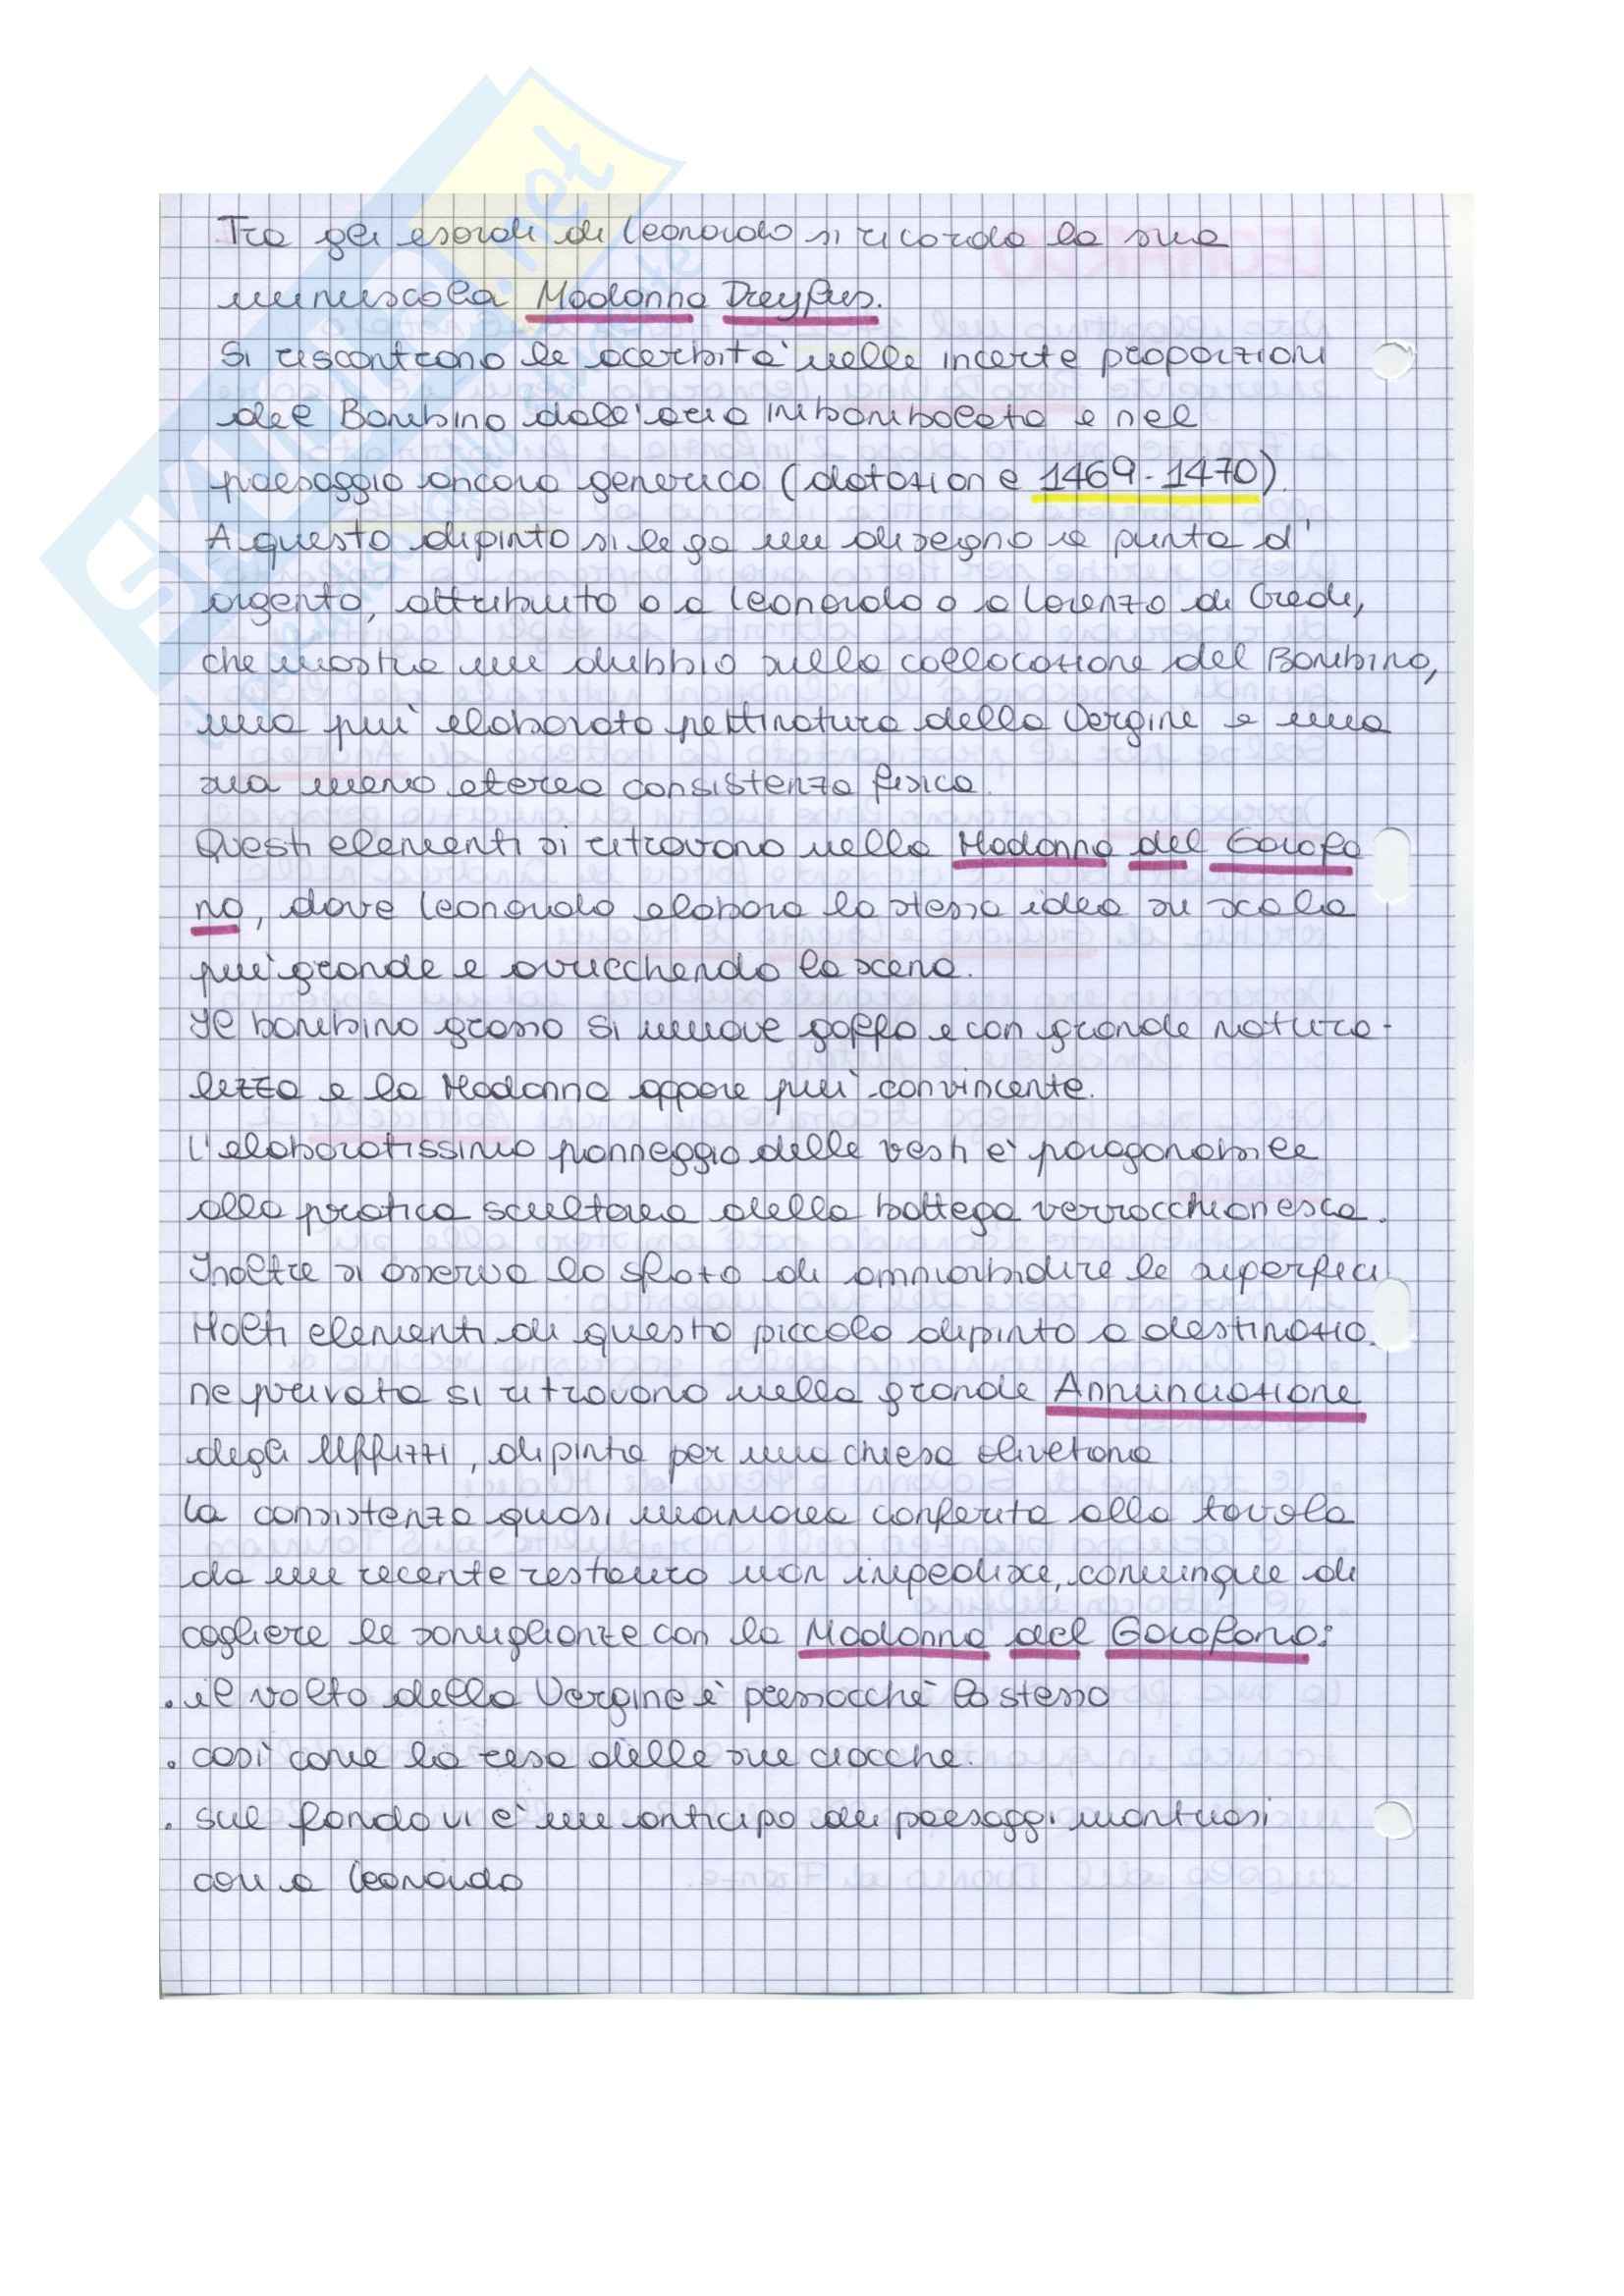 Tra gli esordi di Leonardo si ricorda la sua
minuscola Madonna Dreyfus.
Si riscontrano le acerbità nelle incerte proporzioni
del Bambino dall'aria imbambolata e nel
paesaggio ancora generico (datazione 1469-1470).
A questo dipinto si lega un disegno a punta d'
argento, attribuito o a Leonardo o a Lorenzo di Credi,
che mostra un dubbio sulla collocazione del Bambino,
una più elaborata pettinatura della Vergine e una
sua meno eterea consistenza fisica.
Questi elementi si ritrovano nella Madonna del Garofa
no, dove Leonardo elabora la stessa idea su scala
più grande e arricchendo la scena.
Il bambino grasso si muove goffo e con grande natura-
lezza e la Madonna appare più convincente.
L'elaboratissimo panneggio delle vesti è paragonabile
alla pratica scultorea della bottega verrocchionesca.
Inoltre si osserva lo sfoto di ammorbidire le superfici.
Molti elementi di questo piccolo dipinto a destinazio
ne privata si ritrovano nella grande Annunciazione
degli Uffizzi, dipinta per una chiesa olivetana.
La consistenza quasi marmorea conferita alla tavola
da un recente restauro non impedisce, comunque di
cogliere le somiglianze con la Madonna del Garofano:
. il volto della Vergine è pressocché lo stesso
. così come la resa delle sue ciocche.
. sul fondo vi è un anticipo dei paesaggi montuosi
cari a Leonardo
SKUOLA.net